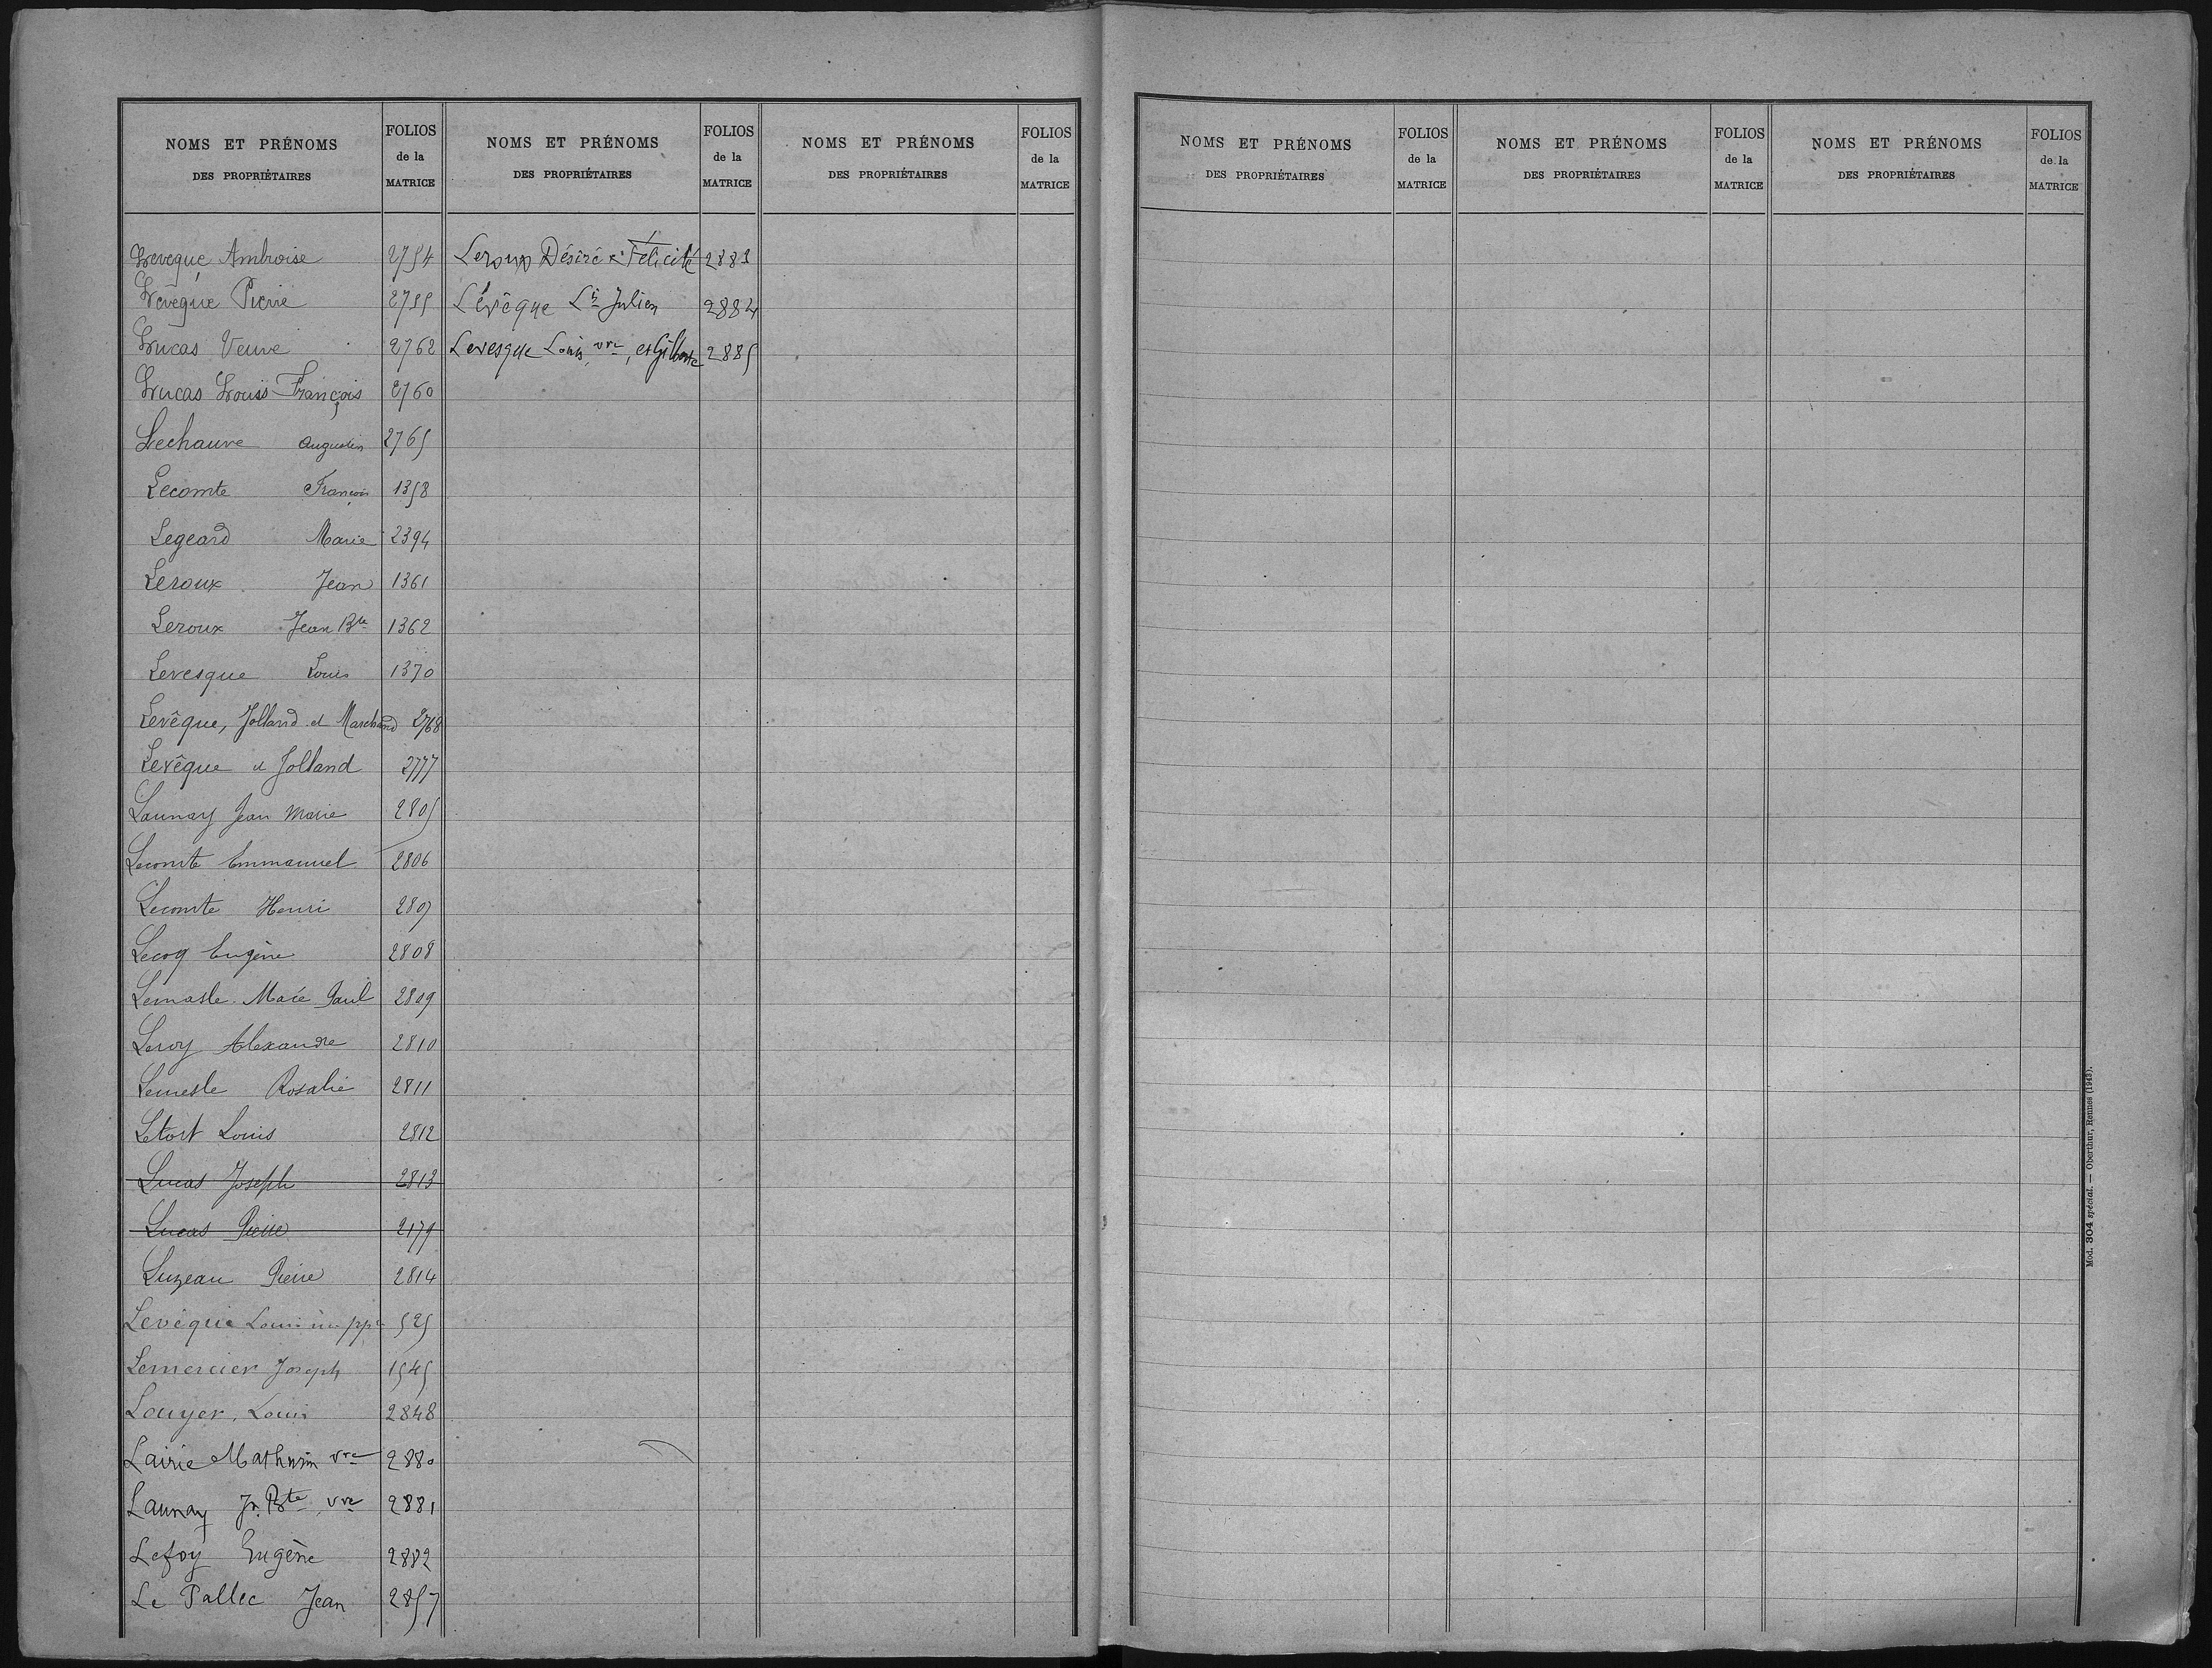 NOMS ET PRÉNOMS
DES PROPRIÉTAIRES
FOLIOS
de la
MATRICE
Leveque Ambroise 2754
Levêque Pierre 2755
Lucas Veuve 2762
Lucas Louis François 2760
Lechauve Augustin 2765
Lecomte François 1358
Legeard Marie 2394
Leroux Jean 1361
Leroux Jean Bte 1362
Levesque Louis 1370
Levêque, Jolland et Marchand 2768
Levêque et Jolland 2777
Launay Jean Marie 2805
Lecomte Emmanuel 2806
Lecomte Henri 2807
Lecoq Eugène 2808
Lemasle Macé Paul 2809
Leroy Alexandre 2810
Lemesle Rosalie 2811
Letort Louis 2812
Lucas Joseph 2813
Lucas Pierre 2179
Luzeau Pierre 2814
Levêque Louis 525
Lemercier Joseph 1545
Louyer, Louis 2848
Lairie Mathurin vve 2880
Launay Jn Bte vve 2881
Lefoy Eugène 2882
Le Pallec Jean 2857
NOMS ET PRÉNOMS
DES PROPRIÉTAIRES
FOLIOS
de la
MATRICE
Leroux Désiré & Félicité 2883
Lévêque Ls Julien 2884
Levesque Louis vve, et Gilberte 2885
NOMS ET PRÉNOMS
DES PROPRIÉTAIRES
FOLIOS
de la
MATRICE
NOMS ET PRÉNOMS
DES PROPRIÉTAIRES
FOLIOS
de la
MATRICE
NOMS ET PRÉNOMS
DES PROPRIÉTAIRES
FOLIOS
de la
MATRICE
NOMS ET PRÉNOMS
DES PROPRIÉTAIRES
FOLIOS
de la
MATRICE
Mod. 304 spécial. — Oberthur, Rennes (1943).